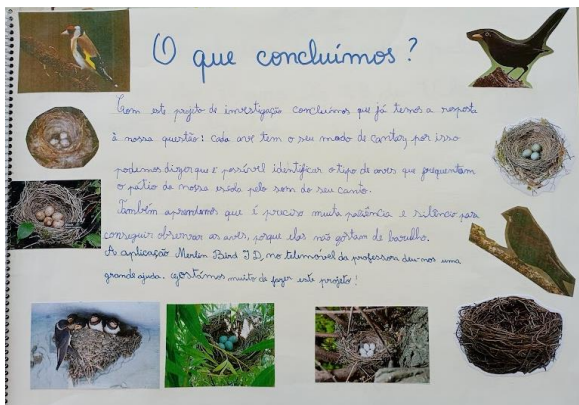 O que concluímos?
Com este projeto de investigação concluímos que já temos a resposta
à nossa questão: cada ave tem o seu modo de cantar, por isso
podemos dizer que é possível identificar o tipo de aves que frequentam
o pátio da nossa escola pelo som do seu canto.
Também aprendemos que é preciso muita paciência e silêncio para
conseguir observar as aves, porque elas não gostam de barulho.
A aplicação Merlin Bird ID, no telemóvel da professora deu-nos uma
grande ajuda. Gostámos muito de fazer este projeto!